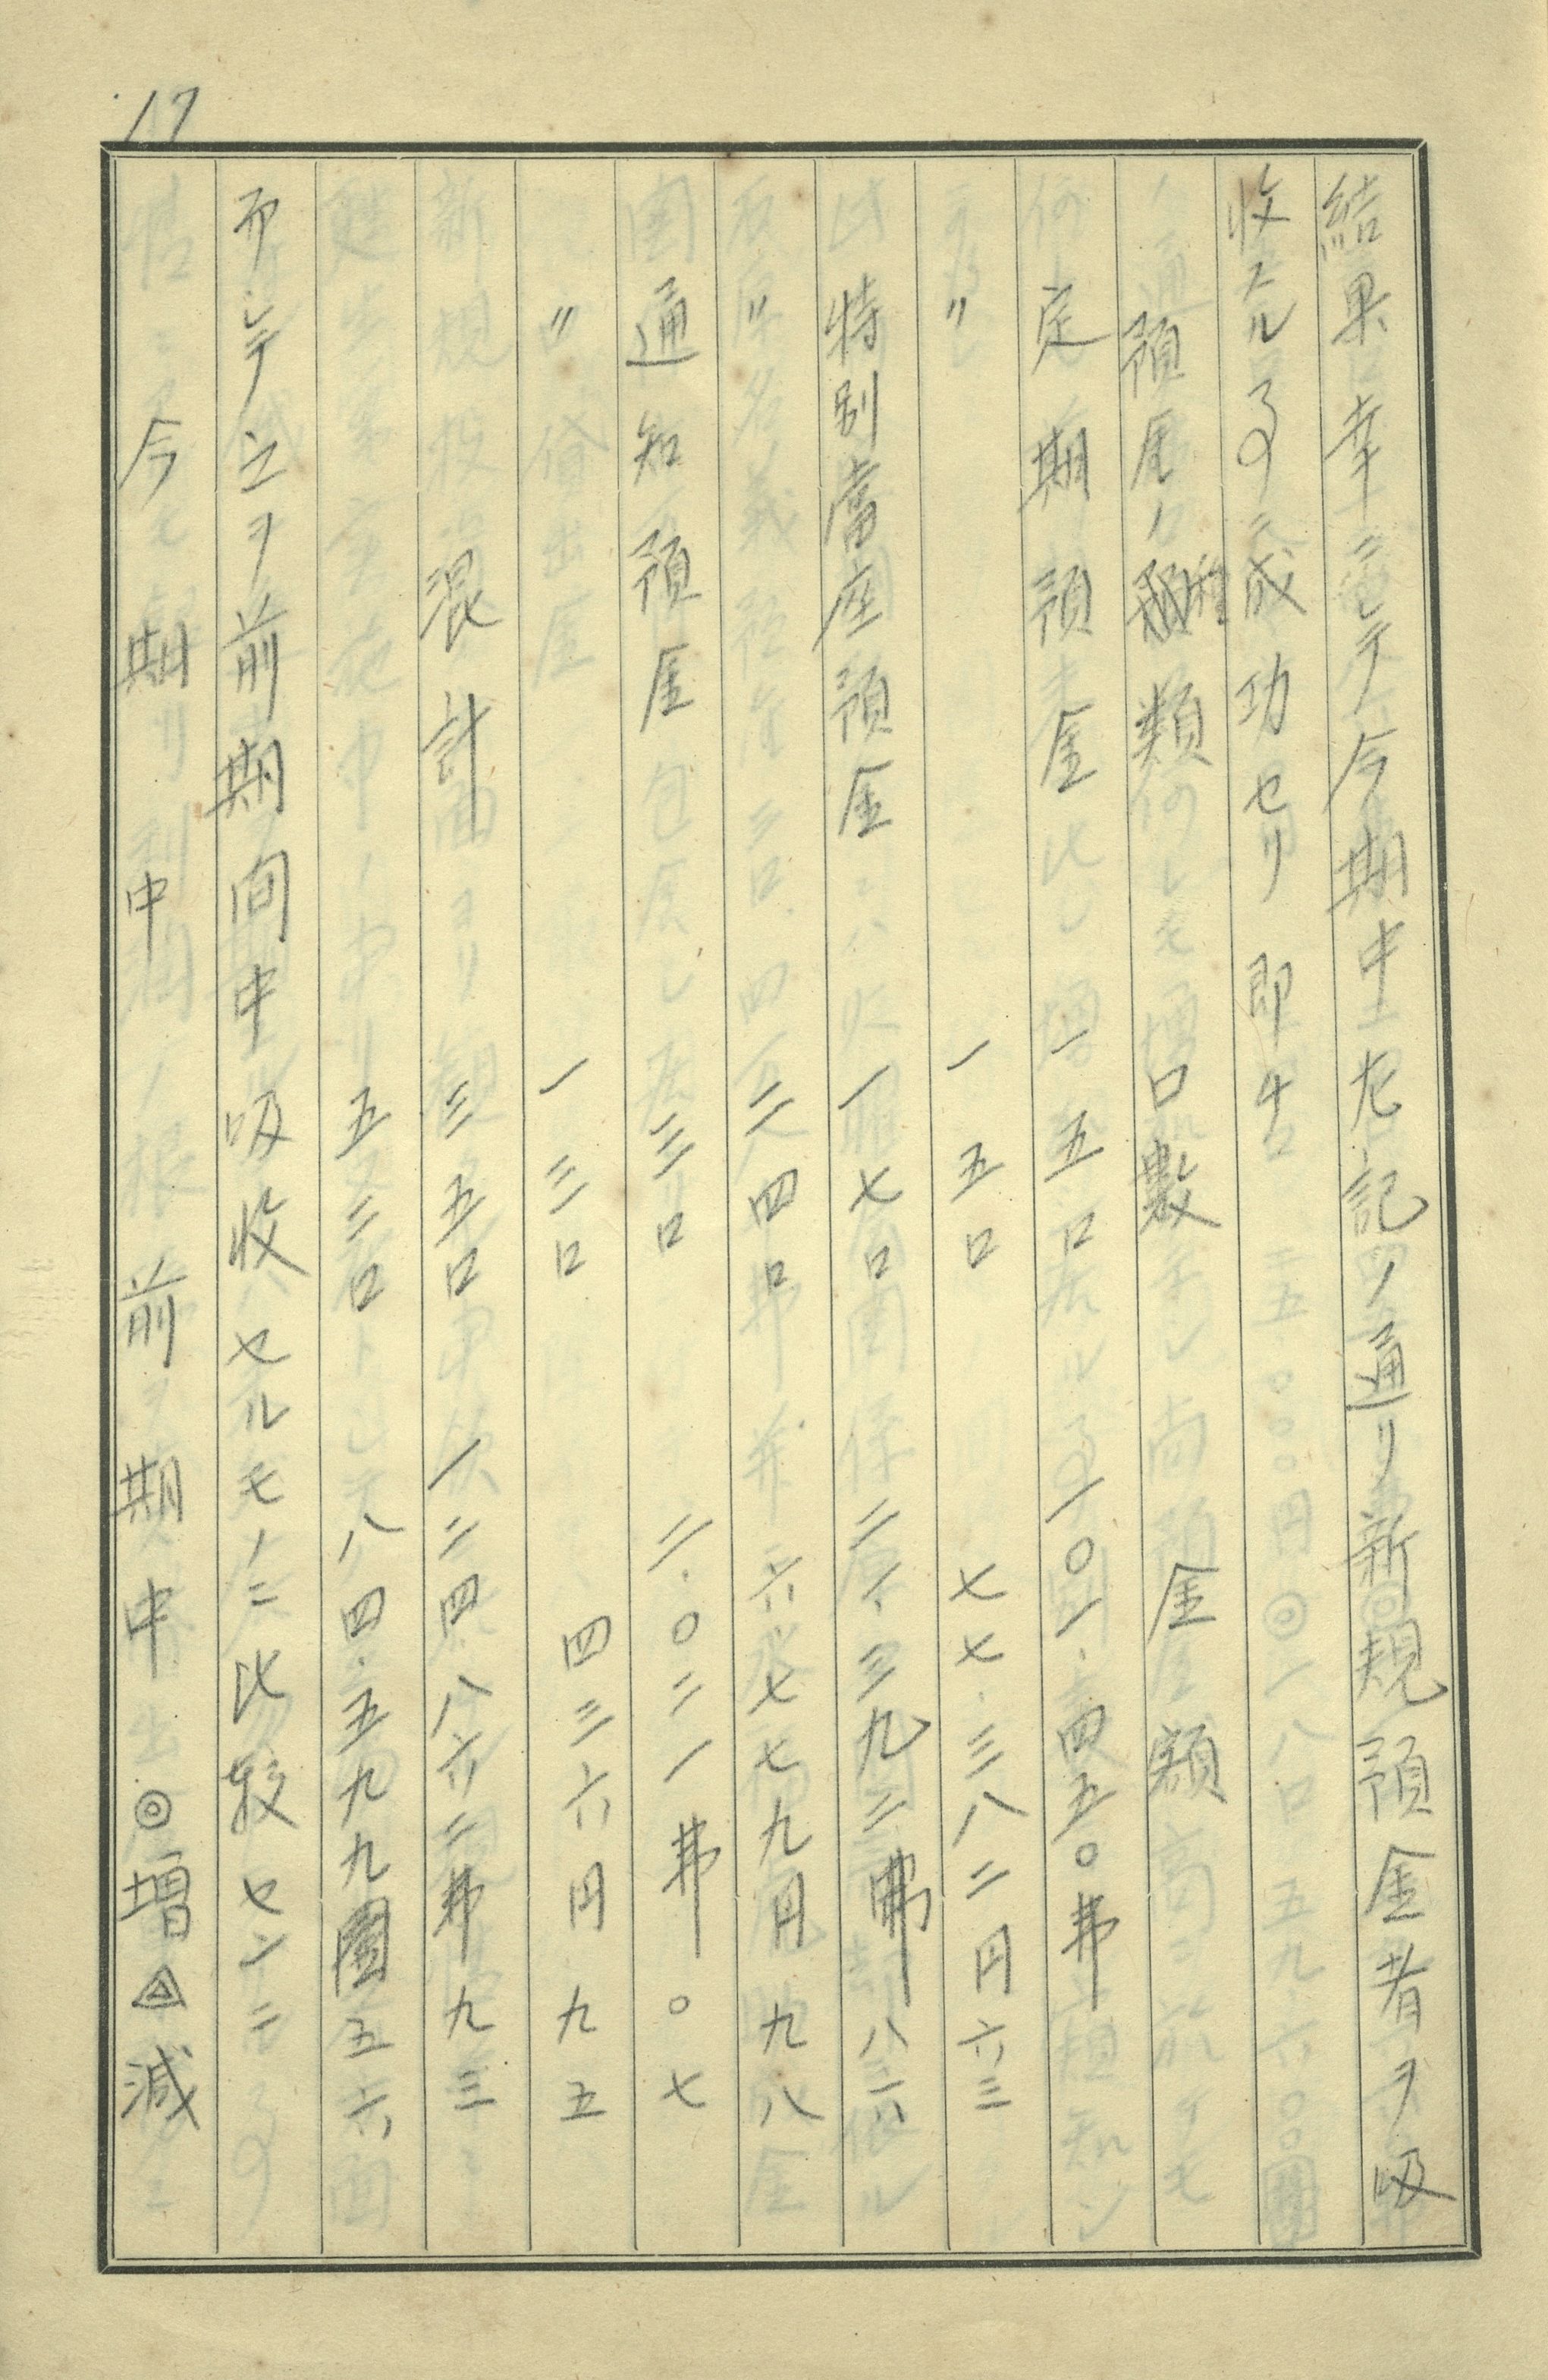 17
結果幸ニシテ今期中左記ノ通リ新規預金者ヲ吸
收スル事ニ成功セリ 即チ
預金ノ種類 口數 金額
定期預金 一五口 一〇一.四五〇弗
〃 一五口 七七.三八二円六三
特別當座預金 一七口 二一.三九二弗八六
〃 二四口 六.七七九円九八
通知預金 三口 二.〇二一弗〇七
〃 一三口 四三六円九五
混計 三五口 一二四.八六二弗九三
五二口 八四.五九九圓五六
而シテ之ヲ前期間中吸收セルモノニ比較センニ
今期中 前期中 ◎增 △減